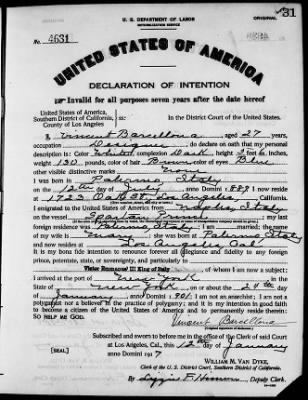 31
U. S. DEPARTMENT OF LABOR
NATURALIZATION SERVICE
ORIGINAL
No. 4631
UNITED STATES OF AMERICA
DECLARATION OF INTENTION
Invalid for all purposes seven years after the date hereof
United States of America,
Southern District of California, ss:
County of Los Angeles
In the District Court of the United States.
I, Vincent Barcellona aged 27 years,
occupation do declare on oath that my personal
description is: Color White, complexion Dark, height feet 6 inches,
weight 130 pounds, color of hair Brown, color of eyes Blue
other visible distinctive marks
I was born in Palermo, Italy
on the 12th day of July, anno Domini 1889; I now reside
at 1723 Los Angeles, California.
I emigrated to the United States of America from Italy
on the vessel; my last
foreign residence was Palermo, Italy; I am married; the name of my
wife is Mary; she was born at Palermo, Italy
and now resides at Los Angeles Cal.
It is my bona fide intention to renounce forever all allegiance and fidelity to any foreign
prince, potentate, state, or sovereignty, and particularly to
Victor Emmanuel III King of Italy, of whom I am now a subject;
I arrived at the port of New York, in the
State of New York, on or about the 24th day
of January, anno Domini; I am not an anarchist; I am not a
polygamist nor a believer in the practice of polygamy; and it is my intention in good faith
to become a citizen of the United States of America and to permanently reside therein:
SO HELP ME GOD.
Vincent Barcellona
Subscribed and sworn to before me in the office of the Clerk of said Court
at Los Angeles, Cal., this 12th day of January
anno Domini 1917
[SEAL]
WILLIAM M. VAN DYKE,
Clerk of the U. S. District Court, Southern District of California.
By Deputy Clerk.